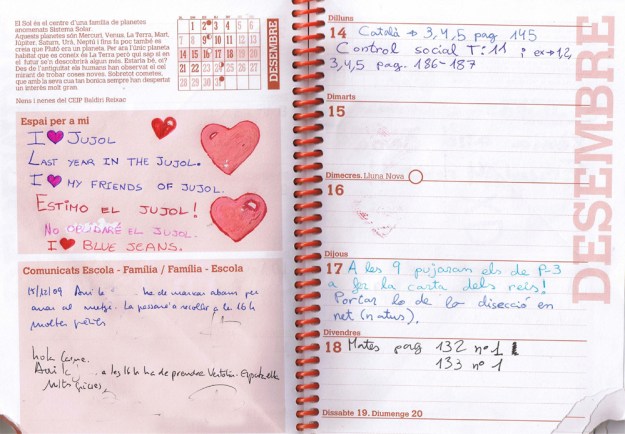 El Sol és el centre d'una família de planetes
anomenats Sistema Solar.
Aquests planetes són Mercuri, Venus, La Terra, Mart,
Júpiter, Saturn, Urà, Neptú i fins fa poc també es
creia que Plutó era un planeta. Per ara l'únic planeta
habitat que es coneix és La Terra però qui sap si en
el futur se'n descobrirà algun més. Estaria bé, oi?
Des de l'antiguitat els humans han observat el cel
mirant de trobar coses noves. Sobretot cometes,
que amb la seva cua tan bonica sempre han despertat
un interès molt gran.
Nens i nenes del CEIP Baldiri Reixac
DESEMBRE
1 2 3 4 5 6
7 8 9 10 11 12 13
14 15 16 17 18 19 20
21 22 23 24 25 26 27
28 29 30 31
Espai per a mi
I JUJOL
LAST YEAR IN THE JUJOL.
I MY FRIENDS OF JUJOL.
ESTIMO EL JUJOL!
NO OBLIDARÉ EL JUJOL.
I BLUE JEANS.
Comunicats Escola - Família / Família - Escola
15/12/09 ha de marxar abans per
anar al metge. La passaré a recollir a les 16 h
moltes gràcies
hola
a les 16 h ha de prendre
Dilluns
14 Català → 3,4,5 pag 145
Control social T:11 ; ex → 1,2,
3,4,5 pag. 186-187
Dimarts
15
Dimecres. Lluna Nova
16
Dijous
17 A les 9 pujaran els de P-3
a fer la carta dels reis!
Portar lo de la disecció en
net (natus).
Divendres
18 Mates pag 132 nº 1
133 nº 1
Dissabte 19. Diumenge 20
DESEMBRE